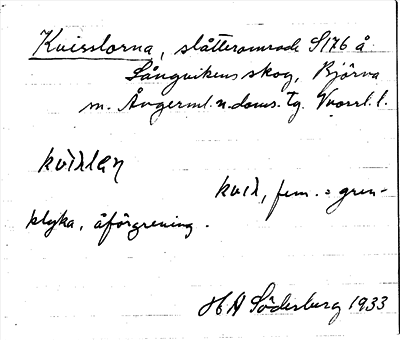 Kvisslorna, slåtterområde S176 å
Långvikens skog, Björna
m. Ångerml. n. doms. tg. Vnorrl. l.
kviλlaŋ
kviλ, fem. = gren-
klyka, åförgrening.
H A Söderberg 1933